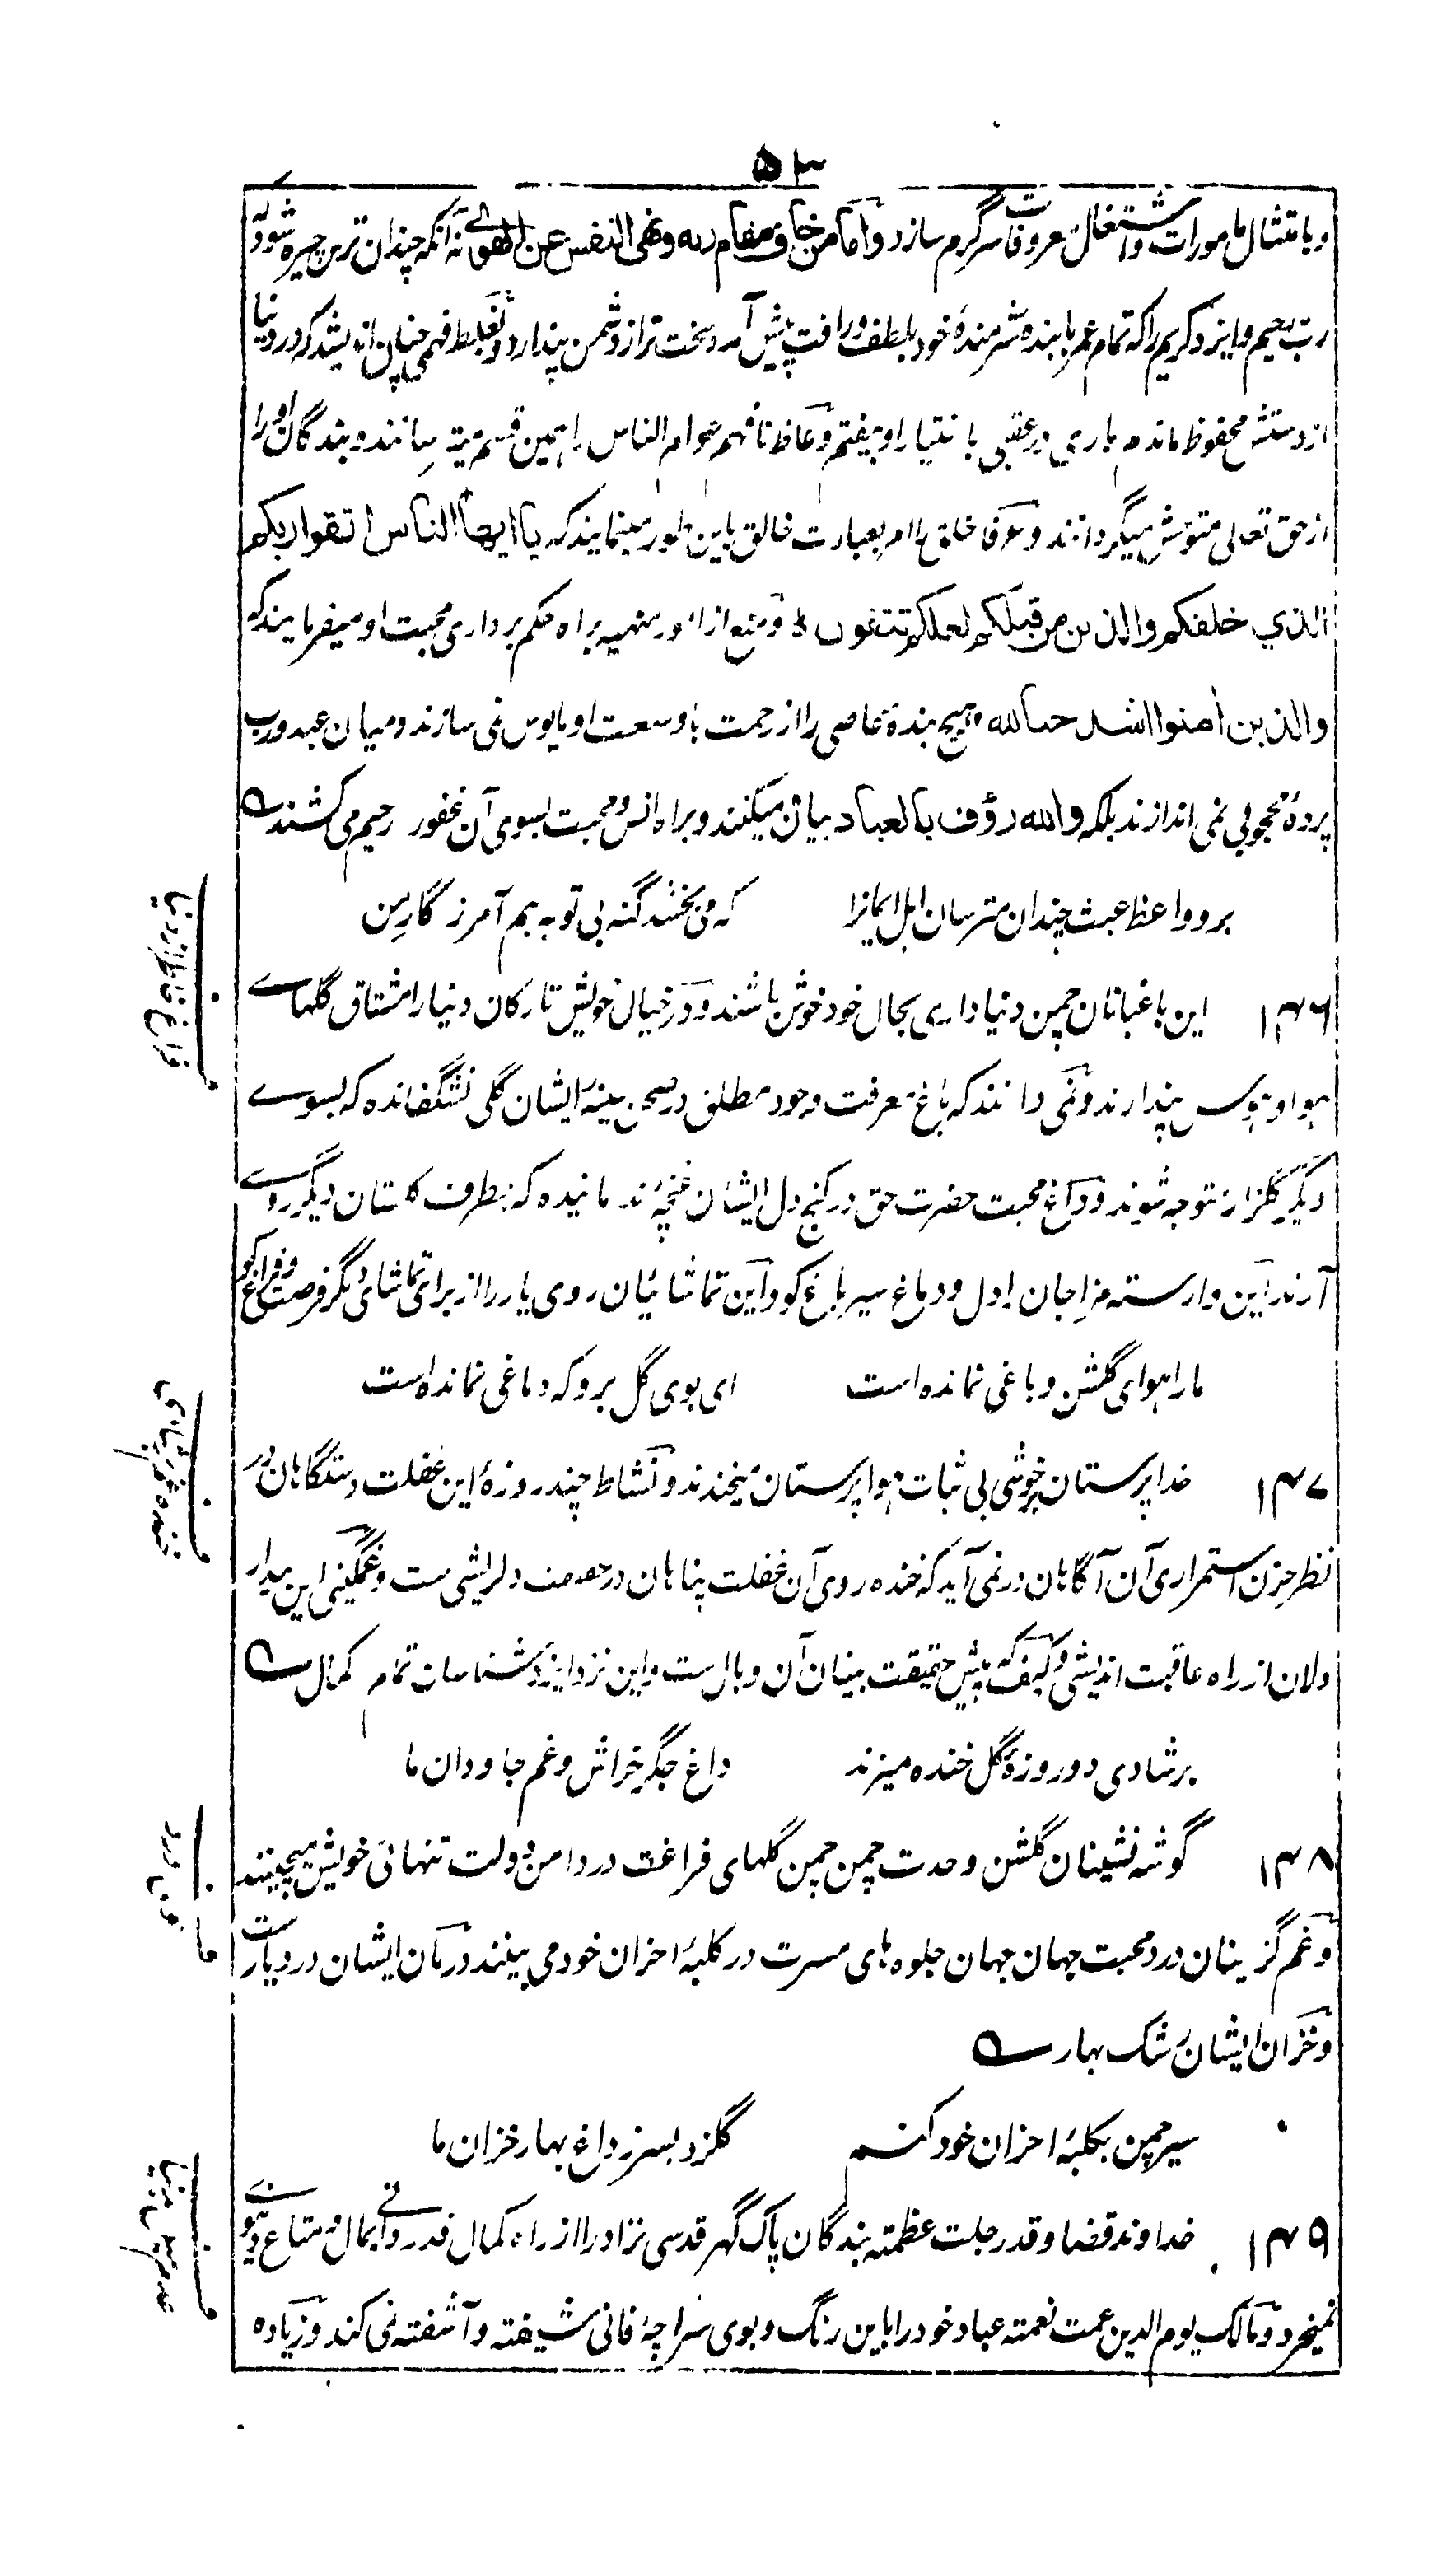 ۵۳
و بامتثال مامورات و اشتغال معروفات سرگرم سازد و اما من خاف مقام ربه و نهی النفس عن الهوی نه آنکه چندان ترس چیره شود که
رب رحیم و ایزد کریم را که تمام عمر با بنده شرمندهٔ خود بلطف و رافت پیش آمده سخت تر از دشمن پندارد و بغلط فهمی چنان اندیشد که در دنیا
از دستش محفوظ مانده باری در عقبی باختیار او بیفتم و عاظ نافهم عوام الناس را همین قسم می ترسانند و بندگان او را
از حق تعالی متوحش میگردانند و عرفا خلق را امر بعبادت خالق باین طور مینمایند که یا ایها الناس اتقوا ربکم
الذي خلقکم والذین من قبلکم لعلکم تتقون و منع از امور منهیه براه حکم برداری محبت او میفرمایند که
والذین امنوا اشد حبا لله و هیچ بندهٔ عاصی را از رحمت با وسعت او مایوس نمی سازند و میان عبد و رب
پردهٔ محجوبی نمی اندازند بلکه والله رؤف بالعباد بیان میکنند و براه انس و محبت بسوی آن غفور رحیم می کشند
برو واعظ عبث چندان مترسان اهل ایمانرا
که می بخشد گنه بی توبه هم آمرزگار من
۱۴۶ این باغبانان چمن دنیاداری بحال خود خوش باشند و در خیال خویش تارکان دنیا را مشتاق گلهاے
هوا و هوس پندارند و نمی دانند که باغ معرفت وجود مطلق در صحن سینهٔ ایشان گلی نشگفانده که بسوے
دیگر گلزار متوجه شوند و داغ محبت حضرت حق در کنج دل ایشان غنچهٔ ندمانیده که بطرف گلستان دیگر روے
آرند این وارسته مزاجان را دل و دماغ سیر باغ کو و این تماشائیان روی یار را از برای تماشای دیگر فرصت و فراغ کو
ما را هوای گلشن و باغی نمانده است
ای بوی گل برو که دماغی نمانده است
۱۴۷ خداپرستان بر خوشی بی ثبات هواپرستان میخندند و نشاط چند روزهٔ این غفلت دستگاهان در
نظر حزن استمراری آن آگاهان در نمی آید که خنده روی آن غفلت پناهان در حقیقت دلریشی ست و غمگینی این بیدار
دلان از راه عاقبت اندیشی و کیف که پیش حقیقت بینان آن وبال ست و این نزد ایزد شناسان تمام کمال
بر شادی دو روزهٔ گل خنده میزند
داغ جگر خراش و غم جاودان ما
۱۴۸ گوشه نشینان گلشن وحدت چمن چمن گلهای فراغت در دامن دولت تنهائی خویش میچینند
و غم گزینان درد محبت جهان جهان جلوه های مسرت در کلبهٔ احزان خود می بینند درمان ایشان درد یارست
و خزان ایشان رشک بهار
سیر چمن بکلبهٔ احزان خود کنم
گلزد بسر ز داغ بهار خزان ما
۱۴۹ خداوند قضا و قدر جلت عظمته بندگان پاک گهر قدسی نژاد را از راه کمال قدردانی بمال و متاع دنیوے
نمیخرد و مالک یوم الدین عمت نعمته عباد خود را باین رنگ و بوی سراچهٔ فانی شیفته و آشفته نمی کند و زیاده